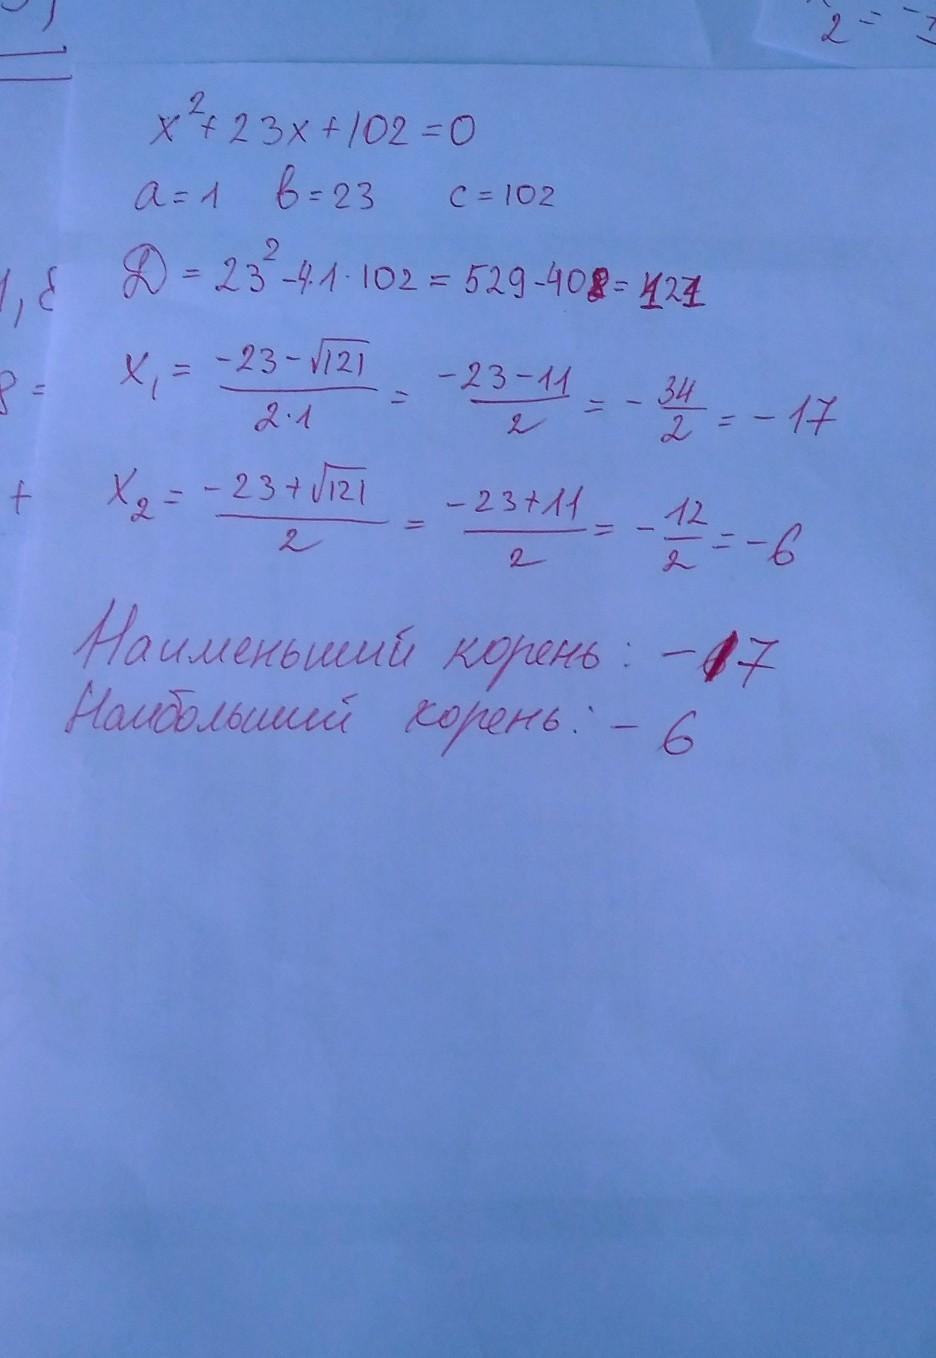 2 = -
x² + 23x + 102 = 0
a = 1 в = 23 c = 102
D = 23² - 4·1·102 = 529 - 408 = 121
x₁ = (-23 - √121)/(2·1) = (-23 - 11)/2 = -34/2 = -17
x₂ = (-23 + √121)/2 = (-23 + 11)/2 = -12/2 = -6
Наименьший корень: -17
Наибольший корень: -6